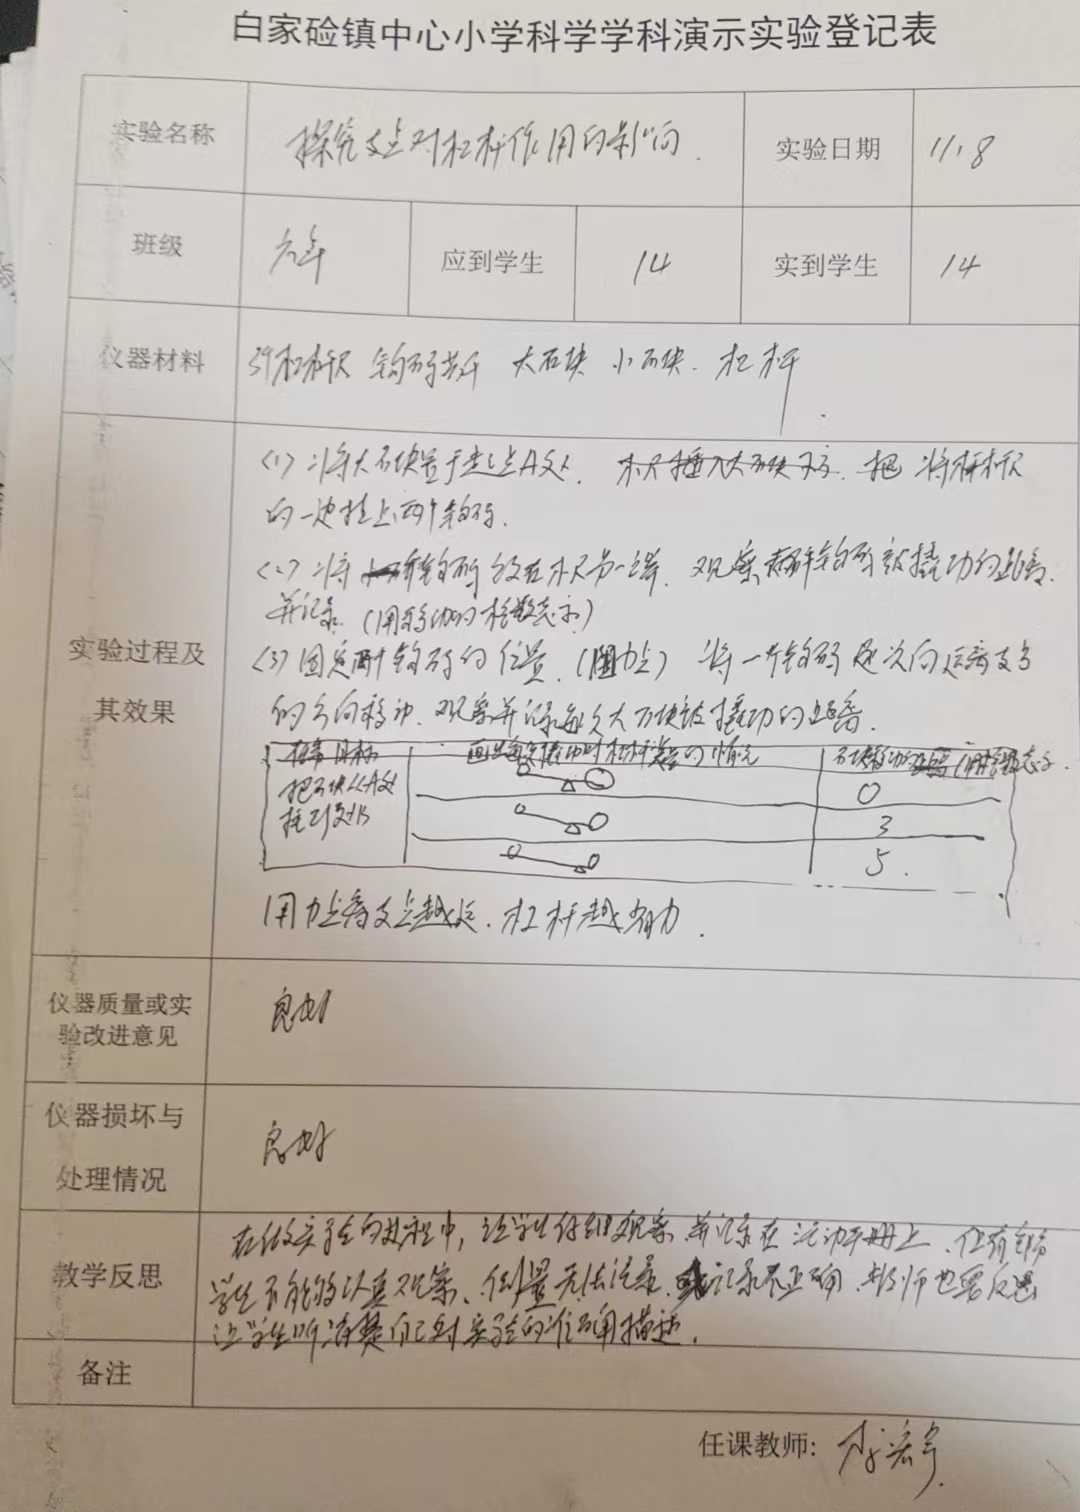 白家硷镇中心小学科学学科演示实验登记表
实验名称 探究支点对杠杆作用的影响. 实验日期 11.8
班级 六年 应到学生 14 实到学生 14
仪器材料 杠杆尺 钩码若干 大石块 小石块. 杠杆
实验过程及其效果
(1) 将大石块置于起点A处. 将杠杆尺
的一边挂上两个钩码.
(2) 将 钩码放在木尺另一端. 观察 钩码被撬动的距离.
并记录. (用移动的格数表示)
(3) 固定两个钩码的位置. (阻力点) 将一个钩码逐次向远离支点
的方向移动. 观察并记录每次大石块被撬动的距离.
目标 画出每次撬动时杠杆 的情况 石块移动的距离 (用格数表示.
把石块从A处 0
撬到 B 3
5.
用力点离支点越远. 杠杆越省力.
仪器质量或实验改进意见 良好
仪器损坏与处理情况 良好
教学反思
在做实验的过程中, 让学生仔细观察. 并记录在活动手册上. 但有部分
学生不能够认真观察. 测量无法记录. 记录不正确. 教师也要反思
让学生听清楚自己对实验的准确描述.
备注
任课教师: 李宏宇